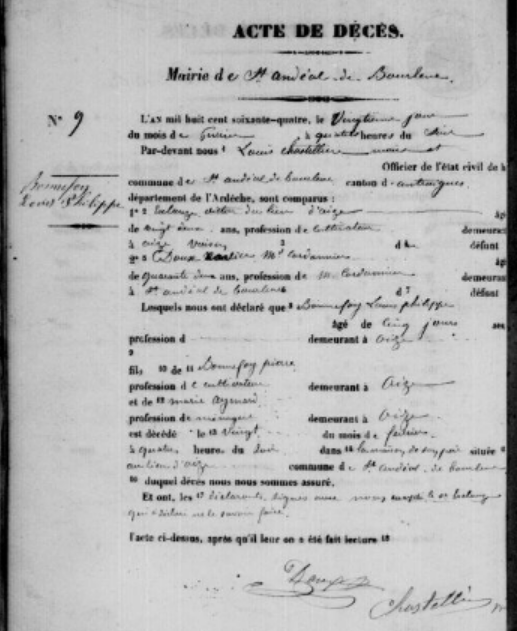 ACTE DE DÉCÈS.
Mairie de St andéol de Bourlenc.
N° 9
L'AN mil huit cent soixante-quatre, le Vingtième jour
du mois de fevrier, à quatre heures du soir
Par-devant nous 1 Louis Chastellier maire et
Officier de l'état civil de la
commune de St andéol de bourlenc canton d'antraigues
Bonnefoy
Louis Philippe
département de l'Ardèche, sont comparus :
1° 2 victor du lieu d'aize âgé
de vingt deux ans, profession de cultivateur demeurant
à aize voisin 3 du défunt
2° 2 Doux Md Cordonnier âgé
de quarante deux ans, profession de Md Cordonnier demeurant
à St andéol de bourlenc d défunt
Lesquels nous ont déclaré que 8 Bonnefoy Louis philippe
âgé de cinq jours
profession d demeurant à aize
9
fils 10 de 11 Bonnefoy pierre
profession de cultivateur demeurant à aize
et de 12 marie aymard
profession de ménagère demeurant à aize
est décédé le 13 vingt du mois de fevrier
à quatre heure du soir dans 14 la maison de son père située
au lieu d'aize commune de St andéol de bourlenc
16 duquel décès nous nous sommes assuré.
Et ont, les 17 déclarants, signés avec nous excepté le
qui a déclaré ne le savoir faire.
l'acte ci-dessus, après qu'il leur en a été fait lecture 18
Doux
Chastellier